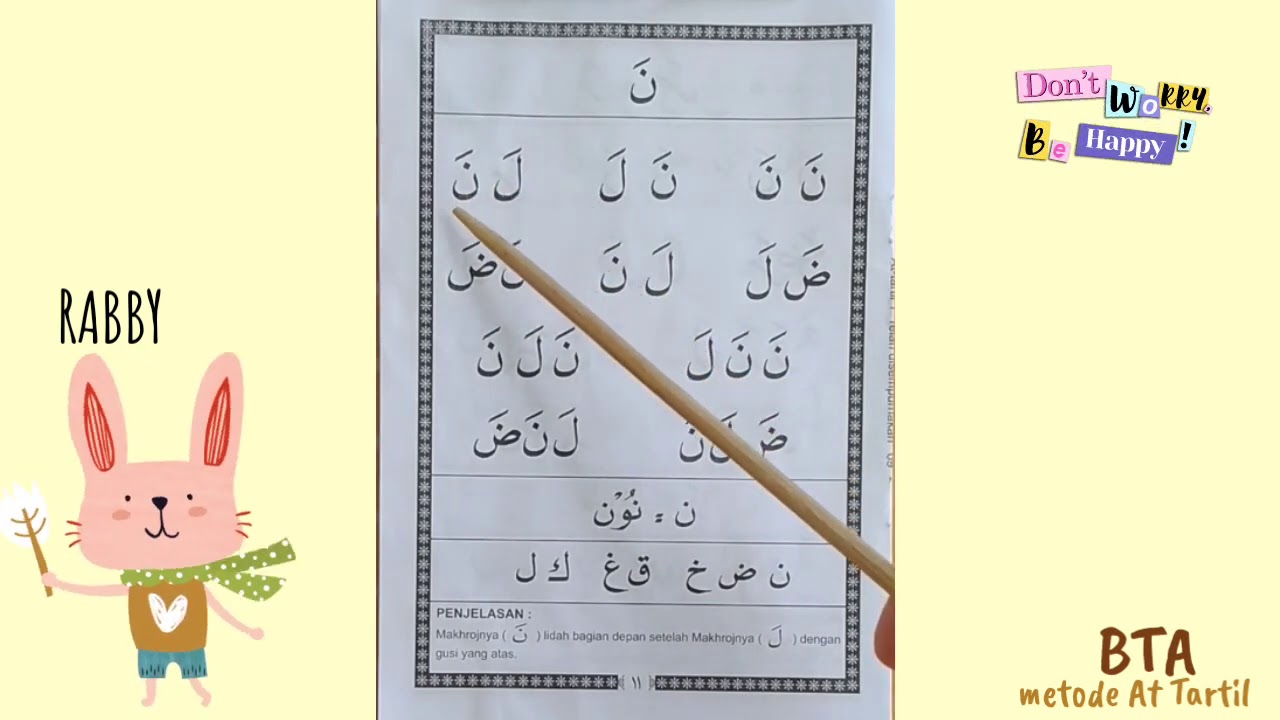 نَ
نَ نَ   نَ لَ   لَ نَ
ضَ لَ   لَ نَ   لَ ضَ
نَ نَ لَ   نَ لَ نَ
ضَ لَ نَ   لَ نَ ضَ
ن = نُوْن
ن ض خ   ق غ   ك ل
PENJELASAN :
Makhrojnya ( نَ ) lidah bagian depan setelah Makhrojnya ( لَ ) dengan
gusi yang atas.
١١
RABBY
Don't Worry,
Be Happy !
BTA
metode At Tartil